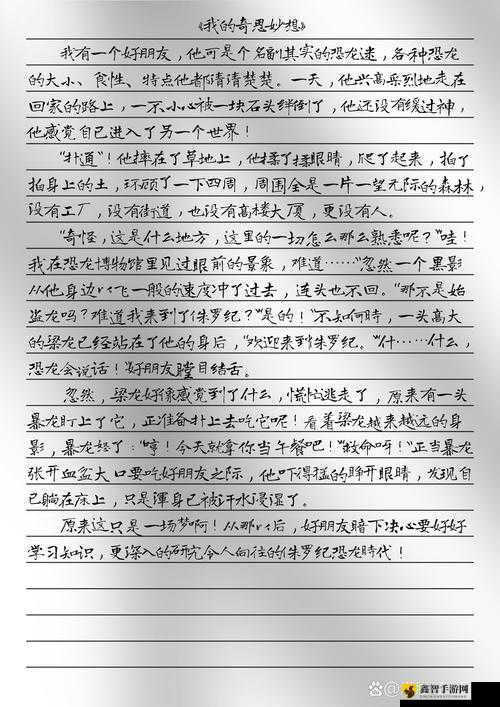 《我的奇思妙想》
我有一个好朋友，他可是个名副其实的恐龙迷，各种恐龙
的大小、食性、特点他都清清楚楚。一天，他兴高采烈地走在
回家的路上，一不小心被一块石头绊倒了，他还没有缓过神，
他感觉自己进入了另一个世界！
“扑通”！他摔在了草地上，他揉了揉眼睛，爬了起来，拍了
拍身上的土，环顾了一下四周，周围全是一片一望无际的森林，
没有工厂，没有街道，也没有高楼大厦，更没有人。
“奇怪，这是什么地方，这里的一切怎么那么熟悉呢？”哇！
我在恐龙博物馆里见过眼前的景象，难道……“忽然一个黑影
从他身边以飞一般的速度冲了过去，连头也不回。“那不是始
盗龙吗？难道我来到了侏罗纪？”是的！“不知何時，一头高大
的梁龙已经站在了他的身后，“欢迎来到侏罗纪。”什……什么，
恐龙会说话！“好朋友瞠目结舌。
忽然，梁龙好像感觉到了什么，慌忙逃走了，原来有一头
暴龙盯上了它，正准备扑上去吃它呢！看着梁龙越来越远的身
影，暴龙怒了：“哼！今天就拿你当午餐吧！”“救命呀！”正当暴龙
张开血盆大口要吃好朋友之际，他吓得猛的睁开眼睛，发现自
己躺在床上，只是渾身已被汗水浸湿了。
原来这只是一场梦啊！从那以后，好朋友暗下决心要好好
学习知识，更深入的研究令人向往的侏罗纪恐龙時代！
鑫智手游网